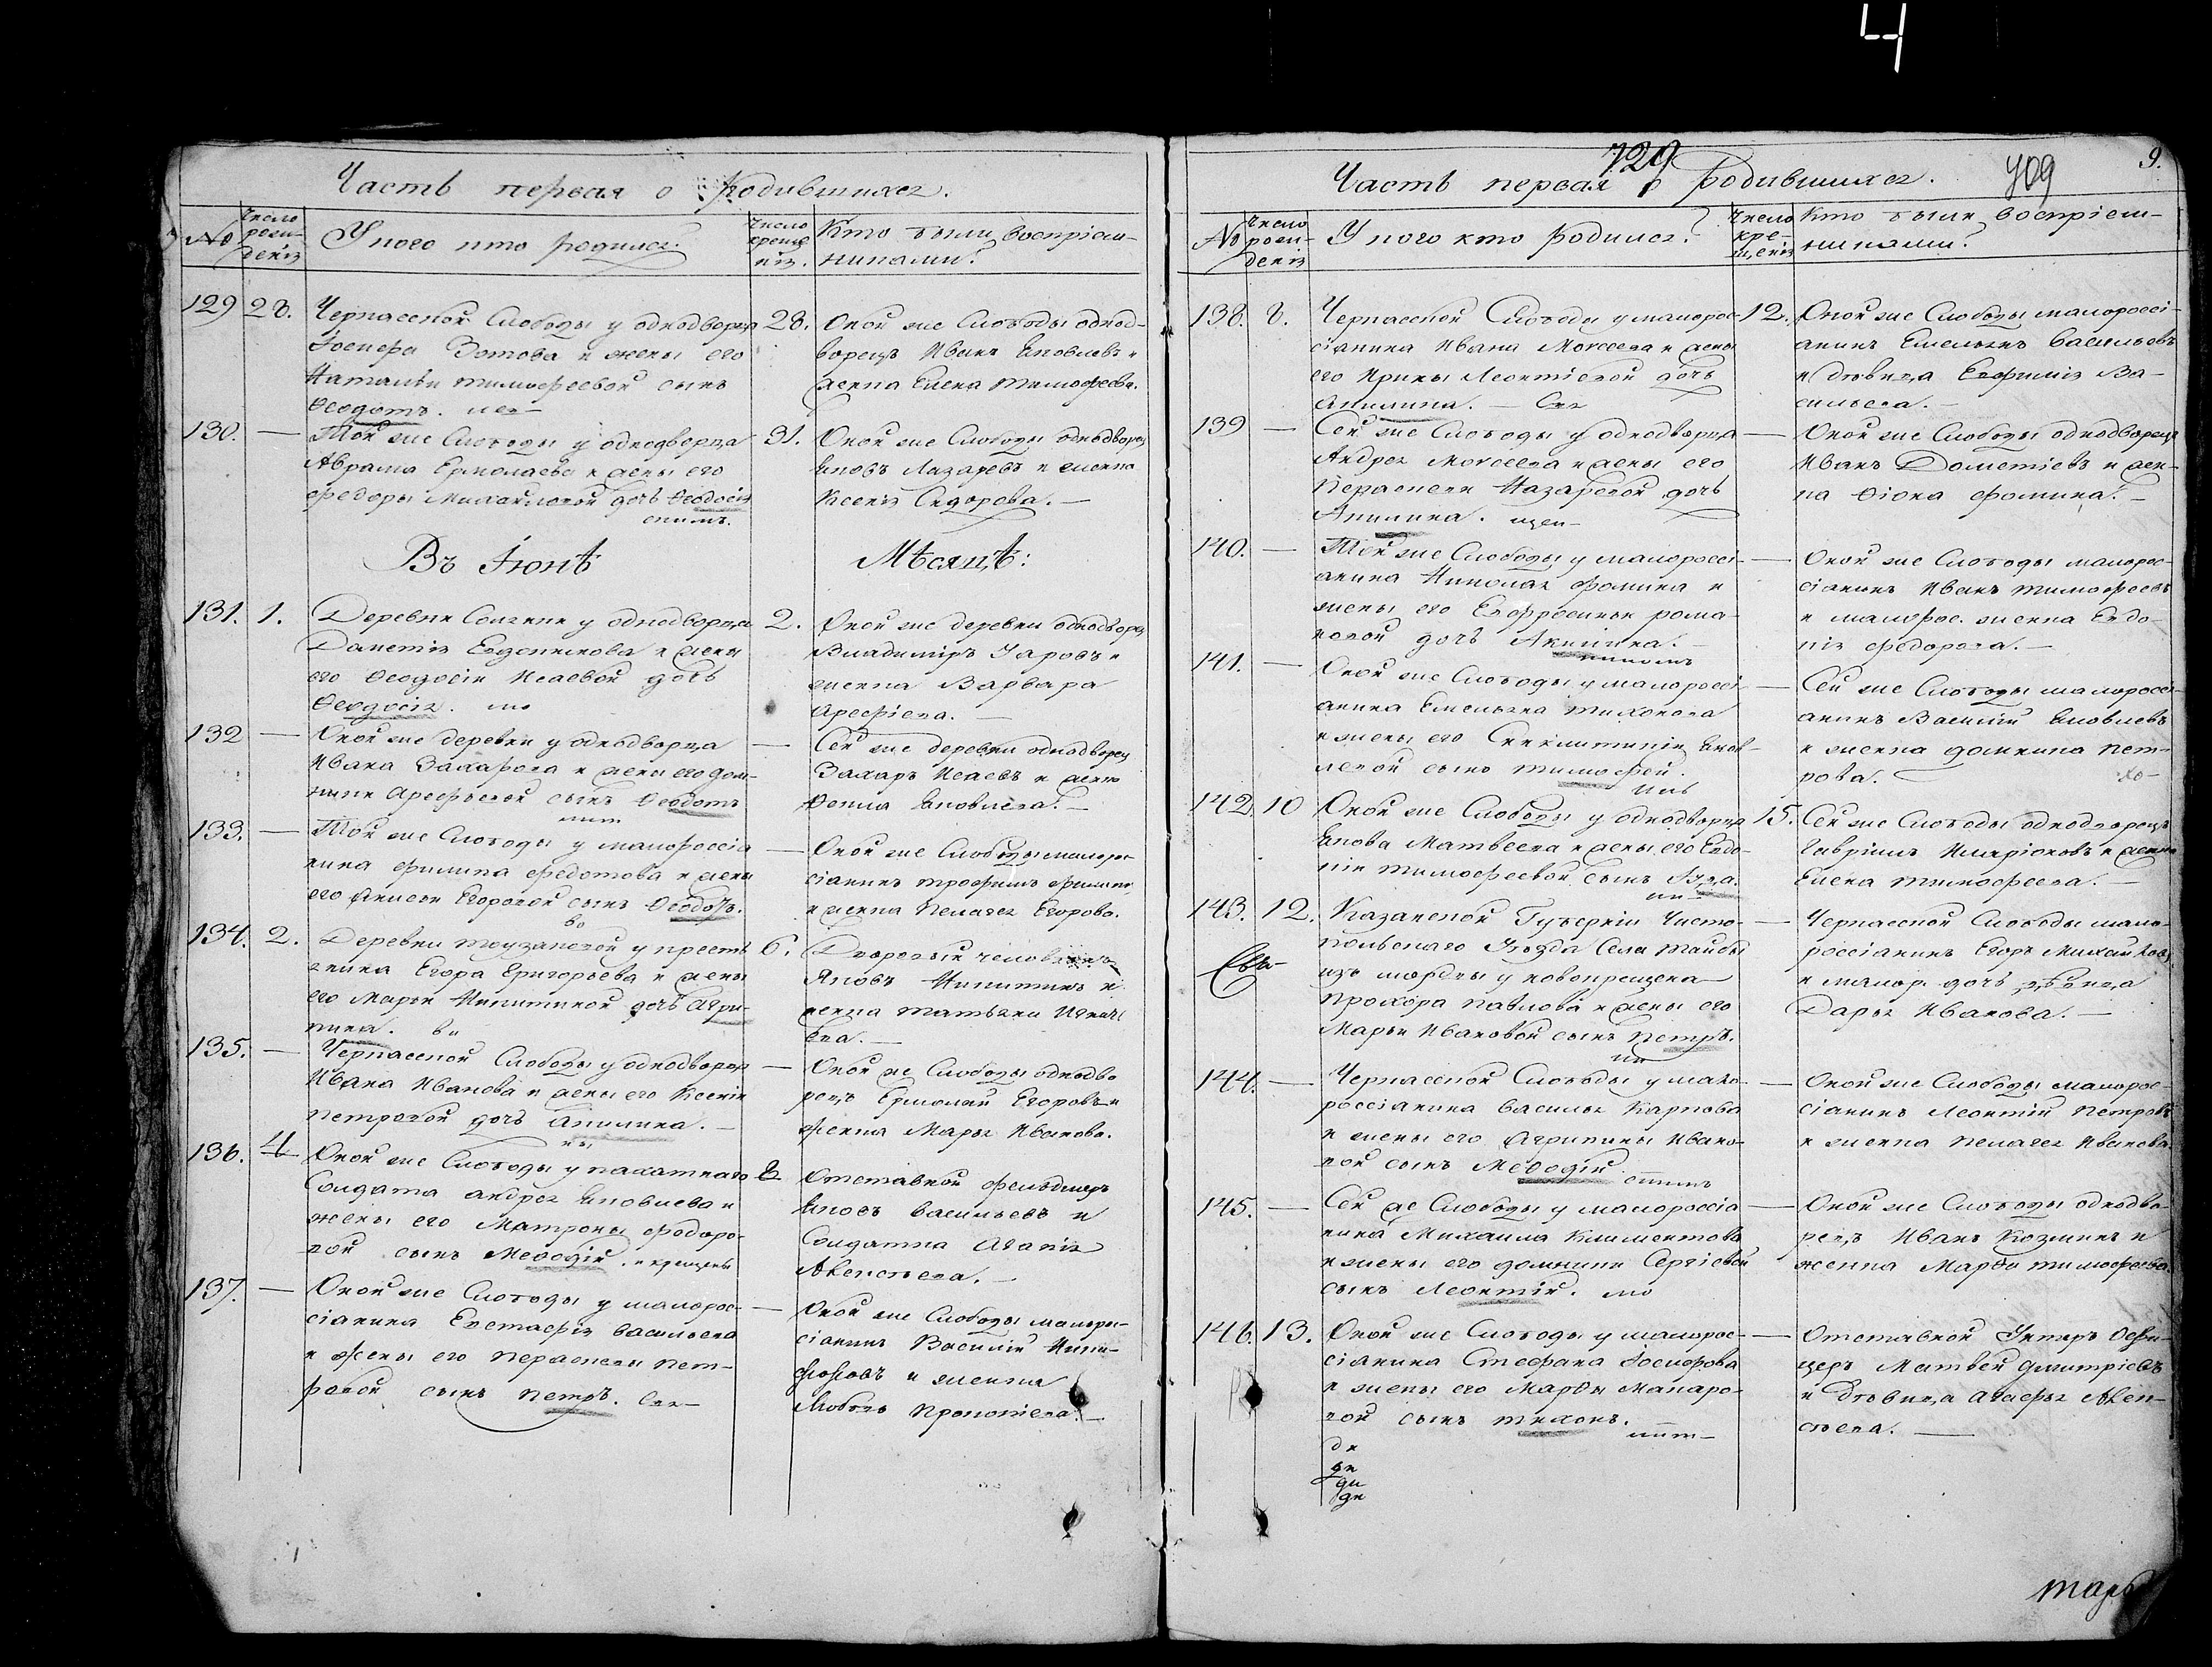 4
Часть первая о Родившихся.
№
Число рожденія
У кого кто родился?
Число крещенія.
Кто были воспріемниками?
129
28.
Черкасской Слободы у однодворца
Іосифа Зотова и жены его
Наталіи Тимофеевой сынъ
Ѳеодотъ.
28.
Оной же Слободы однод-
ворецъ Иванъ Яковлевъ и
женка Елена Тимофеева.
130.
—
Той же Слободы у однодворца
Аврама Ермолаева и жены его
Федоры Михайловой дочь Ѳеодосія
31.
Оной же Слободы однодворец
Яковъ Лазаревъ и женка
Ксенія Сидорова. —
Въ Іюнѣ
Мѣсяцѣ:
131.
1.
Деревни у однодворца
Евдокимова и жены
его Ѳеодосіи Исаевой дочь
Ѳеодосія.
2.
Оной же деревни однодворец
Владиміръ Уаровъ и
женка Варвара
Арефіева. —
132
—
Оной же деревни у однодворца
Ивана Захарова и жены его Дом-
ники Арефьевой сынъ Ѳеодотъ
—
Сей же деревни однодворец
Захаръ Исаевъ и женка
Ѳекла Яковлева. —
133.
—
Той же Слободы у малороссія
нина Филипа Федотова и жены
его Анисьи Егоровой сынъ Ѳеодотъ.
—
Оной же Слободы малорос
сіянинъ Трофимъ
и женка Пелагея Егорова.
134.
2.
Деревни у кресть
янина Егора Григорьева и жены
его Марьи Никитиной дочь Агри-
пина.
6.
Дворовый человѣкъ
Яковъ Никитинъ и
женка Татьяна Игнать
ева. —
135.
—
Черкасской Слободы у однодворца
Ивана Иванова и жены его Ксеніи
Петровой дочь Акилина. —
—
Оной же Слободы однодво
рецъ Ермолай Егоровъ и
женка Марья Иванова.
136.
4
Оной же Слободы у пахатнаго
Солдата Андрея Яковлева и
жены его Матроны Федоро-
вой сынъ Меѳодій.
8
Отставной
Яковъ Васильевъ и
Солдатка Агапія
Авксентьева. —
137.
—
Оной же Слободы у малорос-
сіянина Евстафія Васильева
и жены его Перасковьи Пет-
ровой сынъ Петръ.
—
Оной же Слободы малорос-
сіянинъ Василій Ники-
форовъ и женка
Любовь Прокопіева. —
729
409
9.
Часть первая о родившихся.
№
Число рожденія
У кого кто родился?
Число крещенія
Кто были воспріемниками?
138.
8.
Черкасской Слободы у малорос-
сіянина Ивана Моисеева и жены
его Ирины Леонтіевой дочь
Акилина. —
12.
Оной же Слободы малороссі-
анинъ Емельянъ Васильевъ
и дѣвица Евфимія Ва-
сильева. —
139
—
Сей же Слободы у однодворца
Андрея Моисеева и жены его
Перасковьи Назаровой дочь
Акилина.
—
Оной же Слободы однодворецъ
Иванъ Дометіевъ и жен-
ка Ѳіона Фомина. —
140.
—
Той же Слободы у малороссі-
анина Николая Фомина и
жены его Евфросиньи Рома-
новой дочь Акилина. —
—
Оной же Слободы малорос-
сіанинъ Иванъ Тимофеевъ
и малорос. женка Евдо-
кія Федорова. —
141.
—
Оной же Слободы у малороссі-
анина Емельяна Тихонова
и жены его Яков-
левой сынъ Тимофей.
—
Сей же Слободы малороссі-
анинъ Василій Яковлевъ
и женка Домкина Пет-
рова.
142.
10
Оной же Слободы у однодворца
Якова Матвеева и жены его Евдо-
кіи Тимофеевой сынъ
15.
Сей же Слободы однодворецъ
Гавріилъ Иларіоновъ и женка
Елена Тимофеева. —
143.
12.
Казанской Губерніи Чисто-
польскаго Уѣзда Села
изъ мордвы у новокрещена
Прохора Павлова и жены его
Марьи Ивановой сынъ Петръ.
—
Черкасской Слободы мало-
россіанинъ Егоръ Михайлов
и малор. дочь дѣвица
Дарья Иванова. —
144.
—
Черкасской Слободы у мало-
россіанина Василья Карпова
и жены его Агрипины Ивано-
вой сынъ Меѳодій
—
Оной же Слободы малорос-
сіанинъ Леонтій Петровъ
и женка Пелагея Иванова
145.
—
Сей же Слободы у малороссіа
нина Михаила Климентова
и жены его Домники Сергіевой
сынъ Леонтій.
—
Оной же Слободы однодво-
рецъ Иванъ Козминъ и
женка Марѳа Тимофеева.
146.
13.
Оной же Слободы у малорос-
сіанина Стефана Іосифова
и жены его Марѳы Макаро-
вой сынъ Тихонъ.
—
Отставной Унтеръ Офи-
церъ Матвей Дмитріевъ
и дѣвица Агафья Авксен-
тьева. —